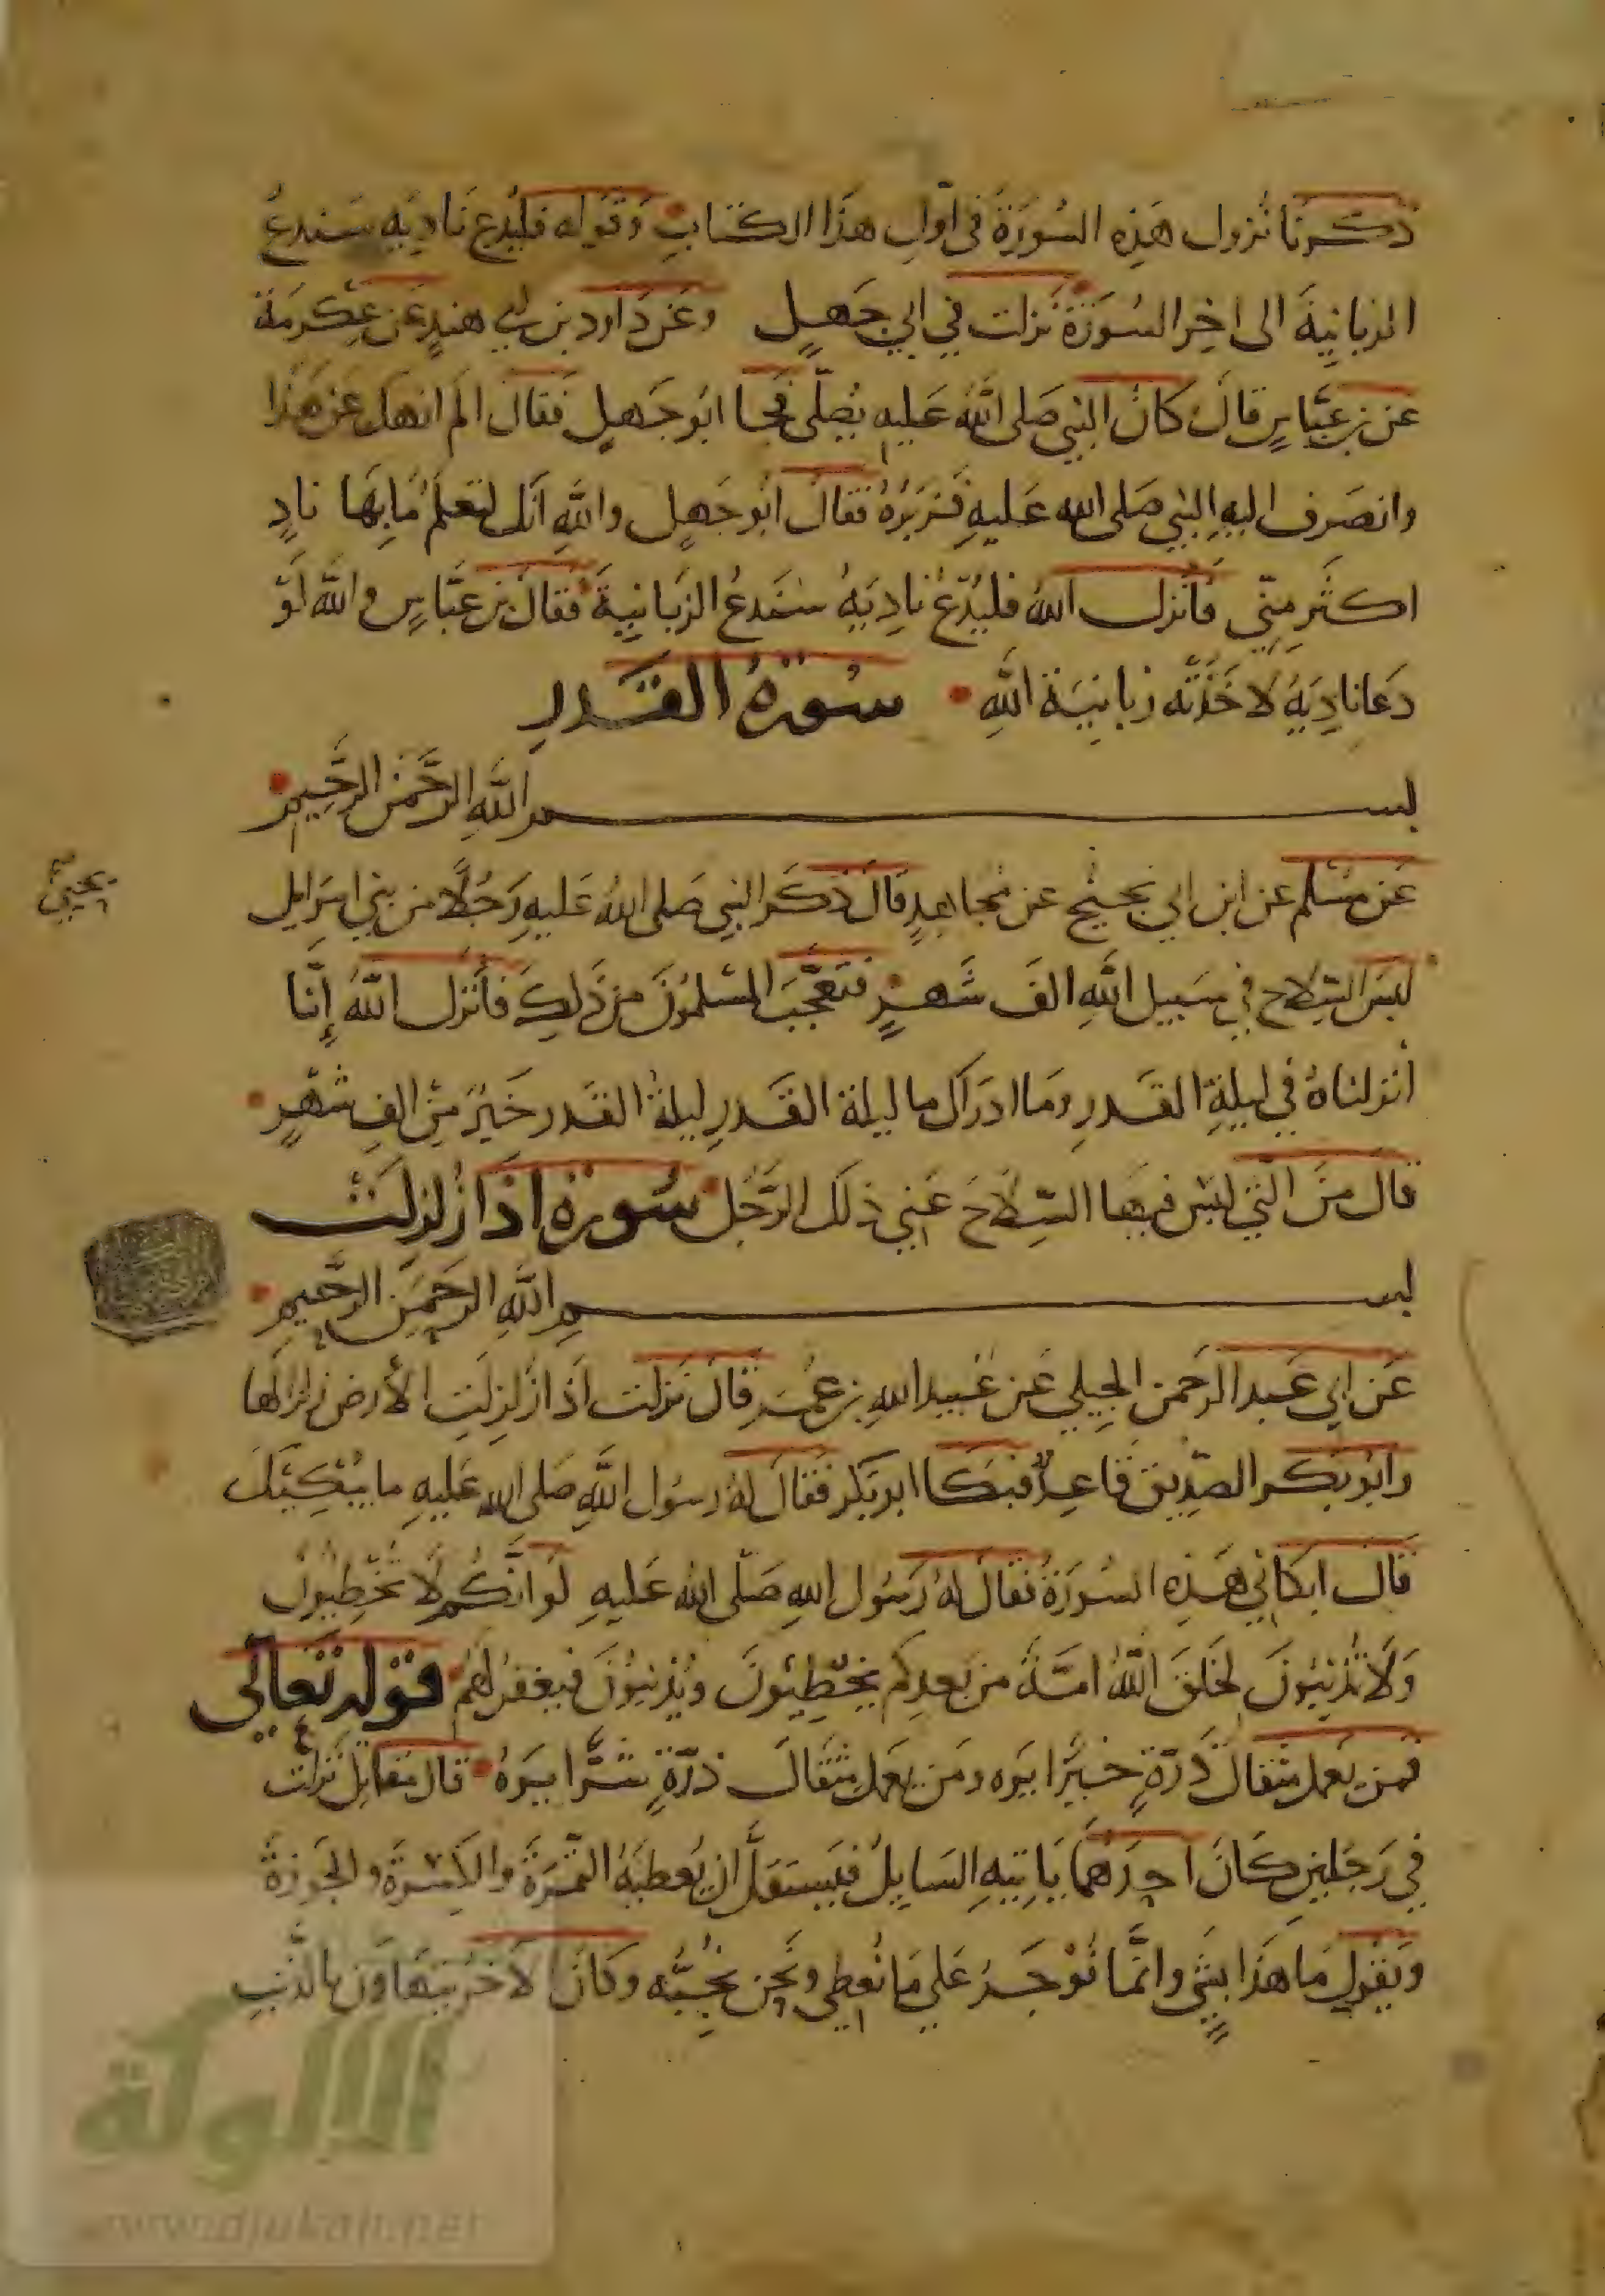 ذكرنا نزول هذه السورة في اول هذا الكتاب وقوله فليدع ناديه سندع
الزبانية الى اخر السورة نزلت في ابي جهل وعن داود بن ابي هند عن عكرمة
عن بن عباس قال كان النبي صلى الله عليه يصلي فجا ابو جهل فقال الم انهك عن هذا
وانصرف اليه النبي صلى الله عليه فزبره فقال ابو جهل والله انك لتعلم ما بها ناد
اكثر مني فانزل الله فليدع ناديه سندع الزبانية فقال بن عباس والله لو
دعا ناديه لاخذته زبانية الله سورة القدر
بسم الله الرحمن الرحيم
عن مسلم عن ابن ابي نجيح عن مجاهد قال ذكر النبي صلى الله عليه رجلا من بني اسرايل
لبس السلاح في سبيل الله الف شهر فتعجب المسلمون من ذلك فانزل الله إنا
أنزلناه في ليلة القدر وما ادراك ما ليلة القدر ليلة القدر خير من الف شهر
قال من التي لبس فيها السلاح عني ذلك الرجل سورة اذا زلزلت
بسم الله الرحمن الرحيم
عن ابي عبد الرحمن الجبلي عن عبيد الله بن عمر قال نزلت اذا زلزلت الأرض زلزالها
وابو بكر الصديق قاعد فبكا ابو بكر فقال له رسول الله صلى الله عليه ما يبكيك
قال ابكاني هذه السورة فقال له رسول الله صلى الله عليه لو انكم لا تخطيون
ولا تذنبون لخلق الله امة من بعدكم يخطيون ويذنبون فيغفر لهم قوله تعالى
فمن يعمل مثقال ذرة خيرا يره ومن يعمل مثقال ذرة شرا يره قال مقاتل نزلت
في رجلين كان احدهما ياتيه السايل فيستقل ان يعطيه التمرة والكسرة والجوزة
ويقول ما هذا بشي وانما نوجر على ما نعطي ونحن نحبه وكان الاخر يتهاون بالذنب
الألوكة
www.alukah.net